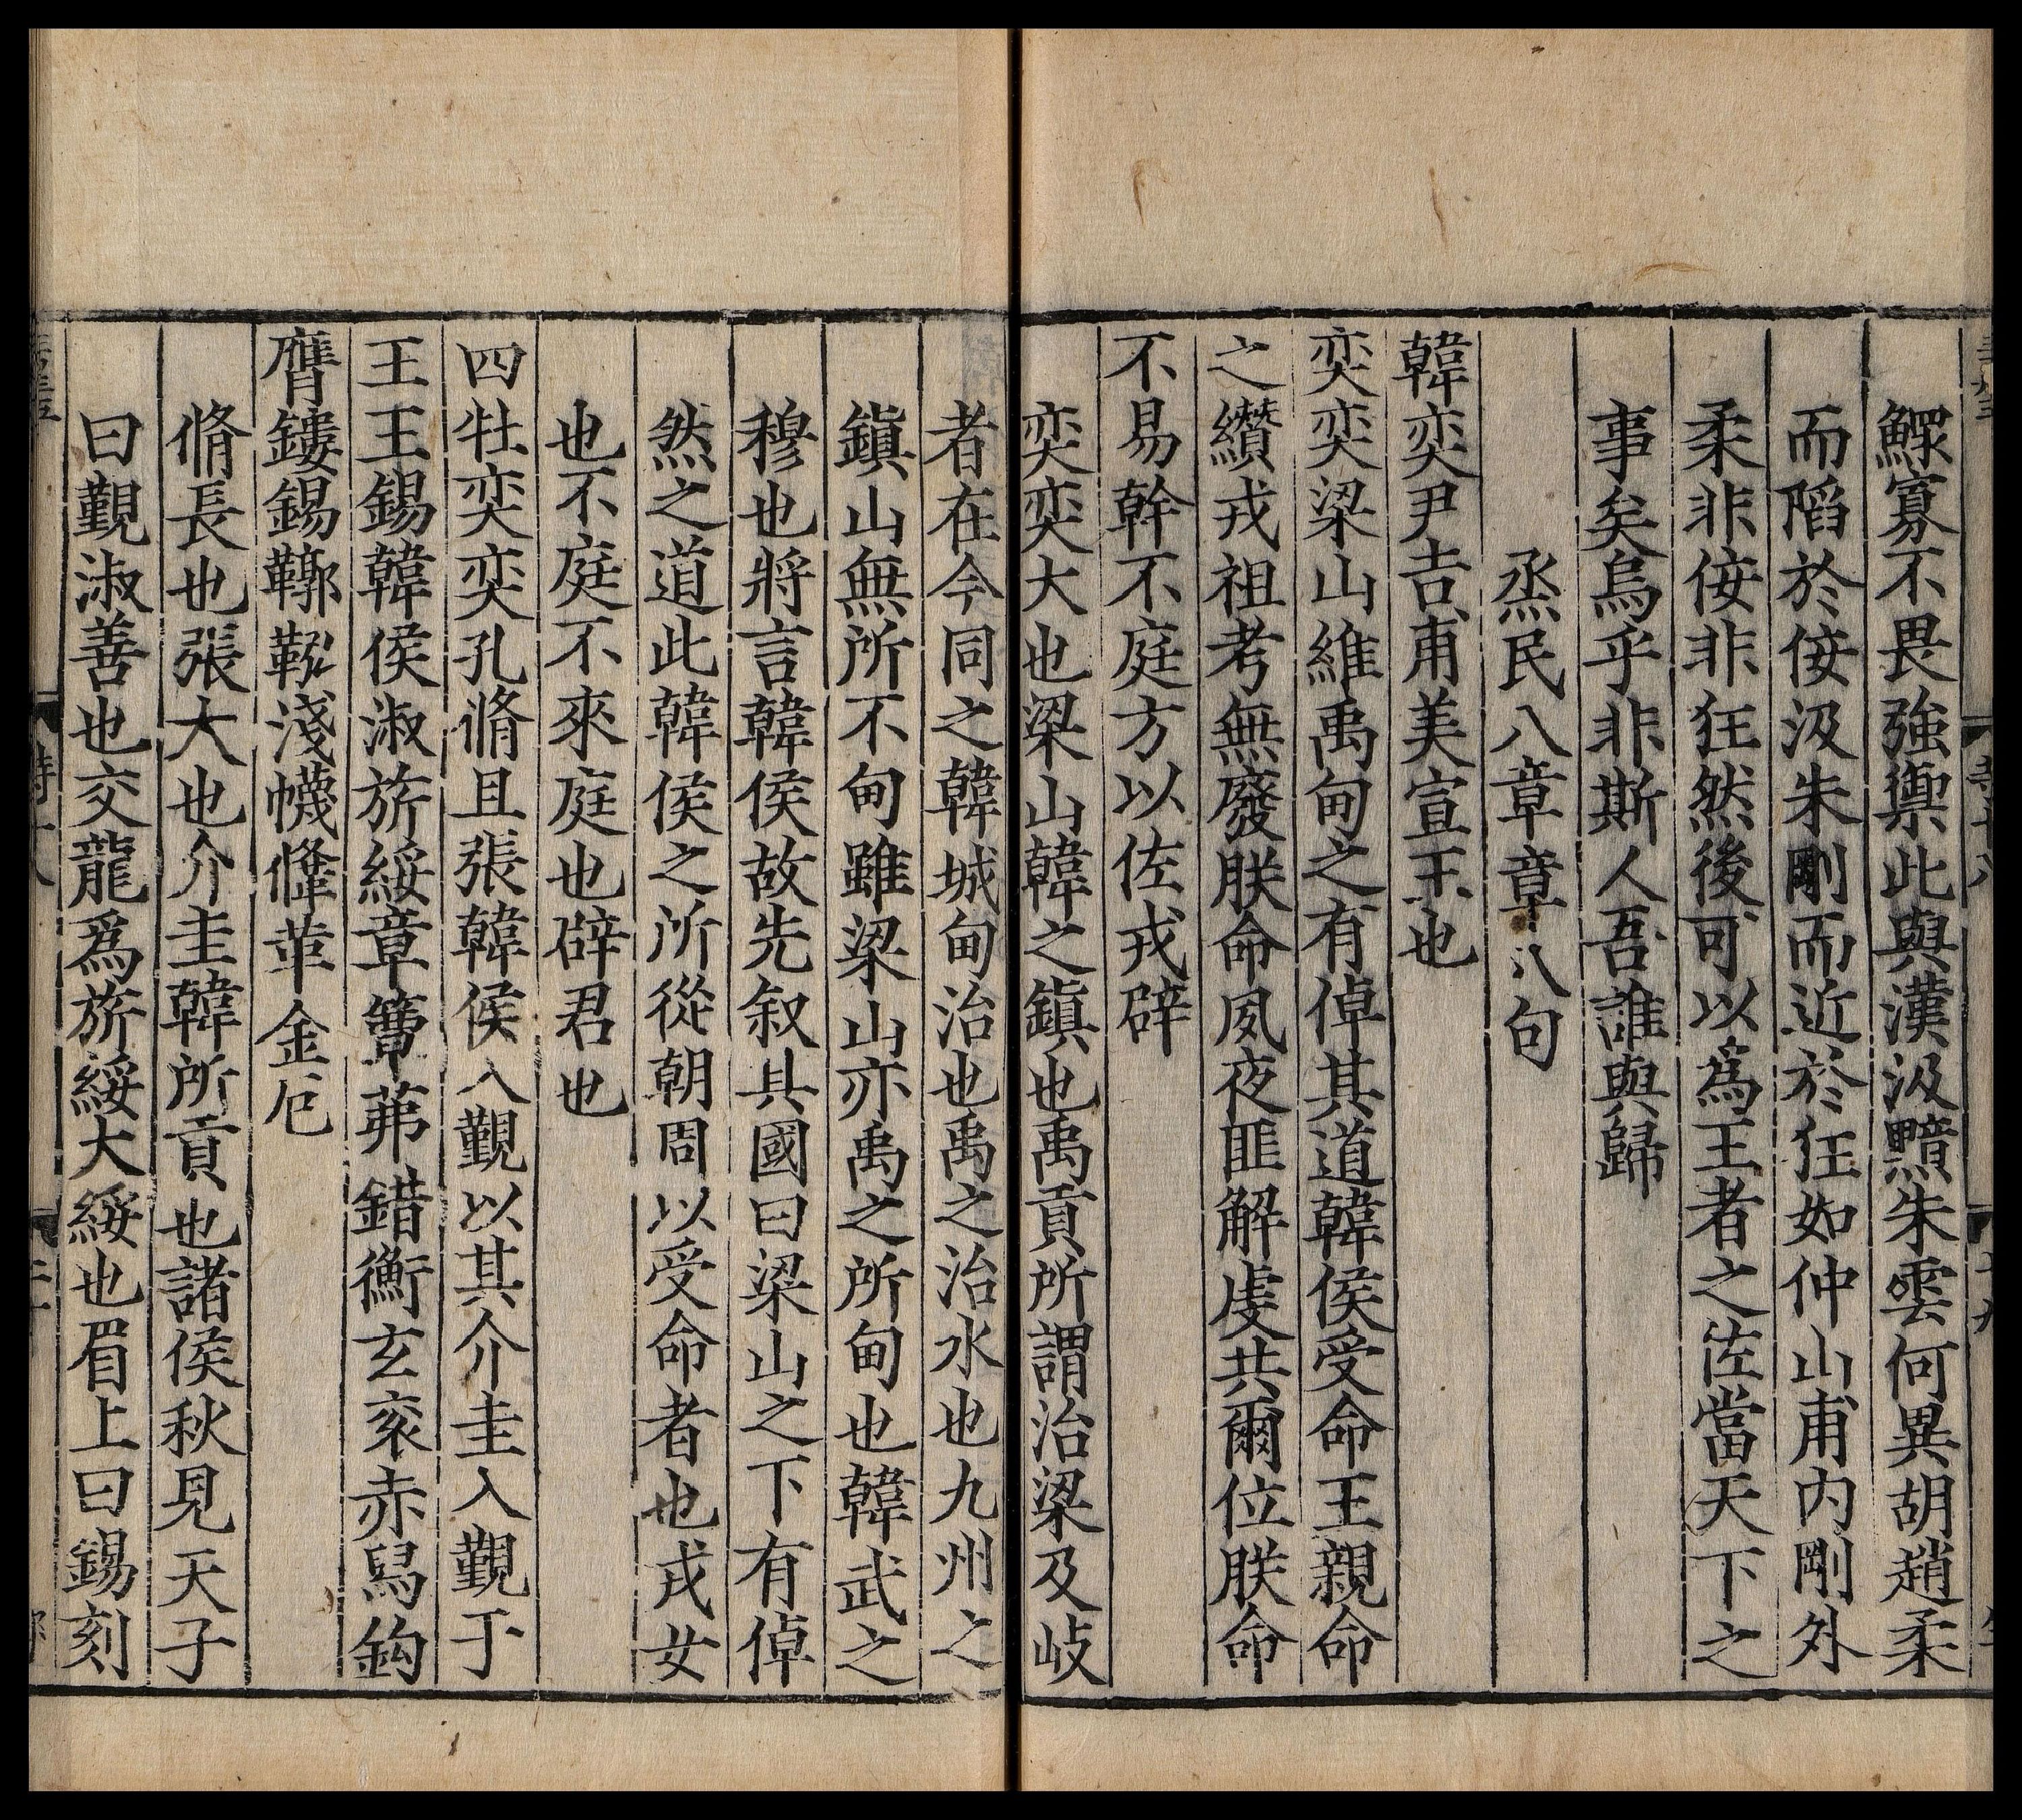 鰥寡不畏強禦此與漢汲黯朱雲何異胡趙柔
而陷於佞汲朱剛而近於狂如仲山甫内剛外
柔非佞非狂然後可以為王者之佐當天下之
事矣烏乎非斯人吾誰與歸
烝民八章章八句
韓奕尹吉甫美宣王也
奕奕梁山維禹甸之有倬其道韓侯受命王親命
之纘戎祖考無廢朕命夙夜匪解虔共爾位朕命
不易幹不庭方以佐戎辟
奕奕大也梁山韓之鎮也禹貢所謂治梁及岐
者在今同之韓城甸治也禹之治水也九州之
鎮山無所不甸雖梁山亦禹之所甸也韓武之
穆也將言韓侯故先叙其國曰梁山之下有倬
然之道此韓侯之所從朝周以受命者也戎女
也不庭不來庭也辟君也
四牡奕奕孔脩且張韓侯入覲以其介圭入覲于
王王錫韓侯淑旂綏章簟茀錯衡玄衮赤舄鉤
膺鏤鍚鞹鞃淺幭鞗革金厄
脩長也張大也介圭韓所貢也諸侯秋見天子
曰覲淑善也交龍為旂綏大綏也眉上曰鍚刻